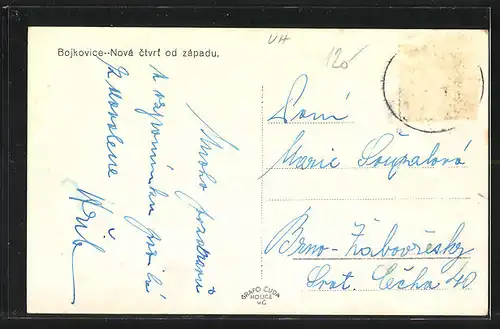 Bojkovice--Nová čtvrť od západu.
VH
120
Mnoho pozdravů
a vzpomínku posílá
z dovolené
Paní
Marie Loupalová
Brno-Žabovřesky
Svat. Čecha 40
GRAFO ČUDA
HOLICE
v.Č.